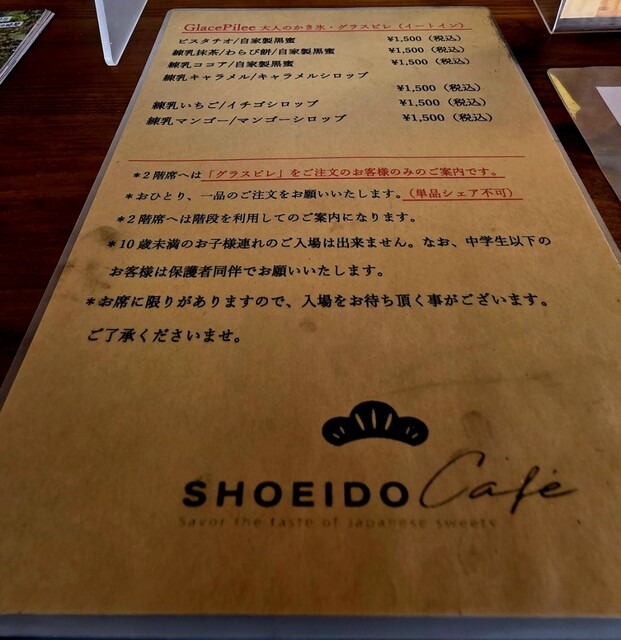 GlacePilee 大人のかき氷・グラスピレ（イートイン）
ピスタチオ/自家製黒蜜 ¥1,500（税込）
練乳抹茶/わらび餅/自家製黒蜜 ¥1,500（税込）
練乳ココア/自家製黒蜜 ¥1,500（税込）
練乳キャラメル/キャラメルシロップ
¥1,500（税込）
練乳いちご/イチゴシロップ ¥1,500（税込）
練乳マンゴー/マンゴーシロップ ¥1,500（税込）
＊2階席へは「グラスピレ」をご注文のお客様のみのご案内です。
＊おひとり、一品のご注文をお願いいたします。（単品シェア不可）
＊2階席へは階段を利用してのご案内になります。
＊10歳未満のお子様連れのご入場は出来ません。なお、中学生以下の
お客様は保護者同伴でお願いいたします。
＊お席に限りがありますので、入場をお待ち頂く事がございます。
ご了承くださいませ。
SHOEIDO Cafe
Savor the taste of Japanese sweets